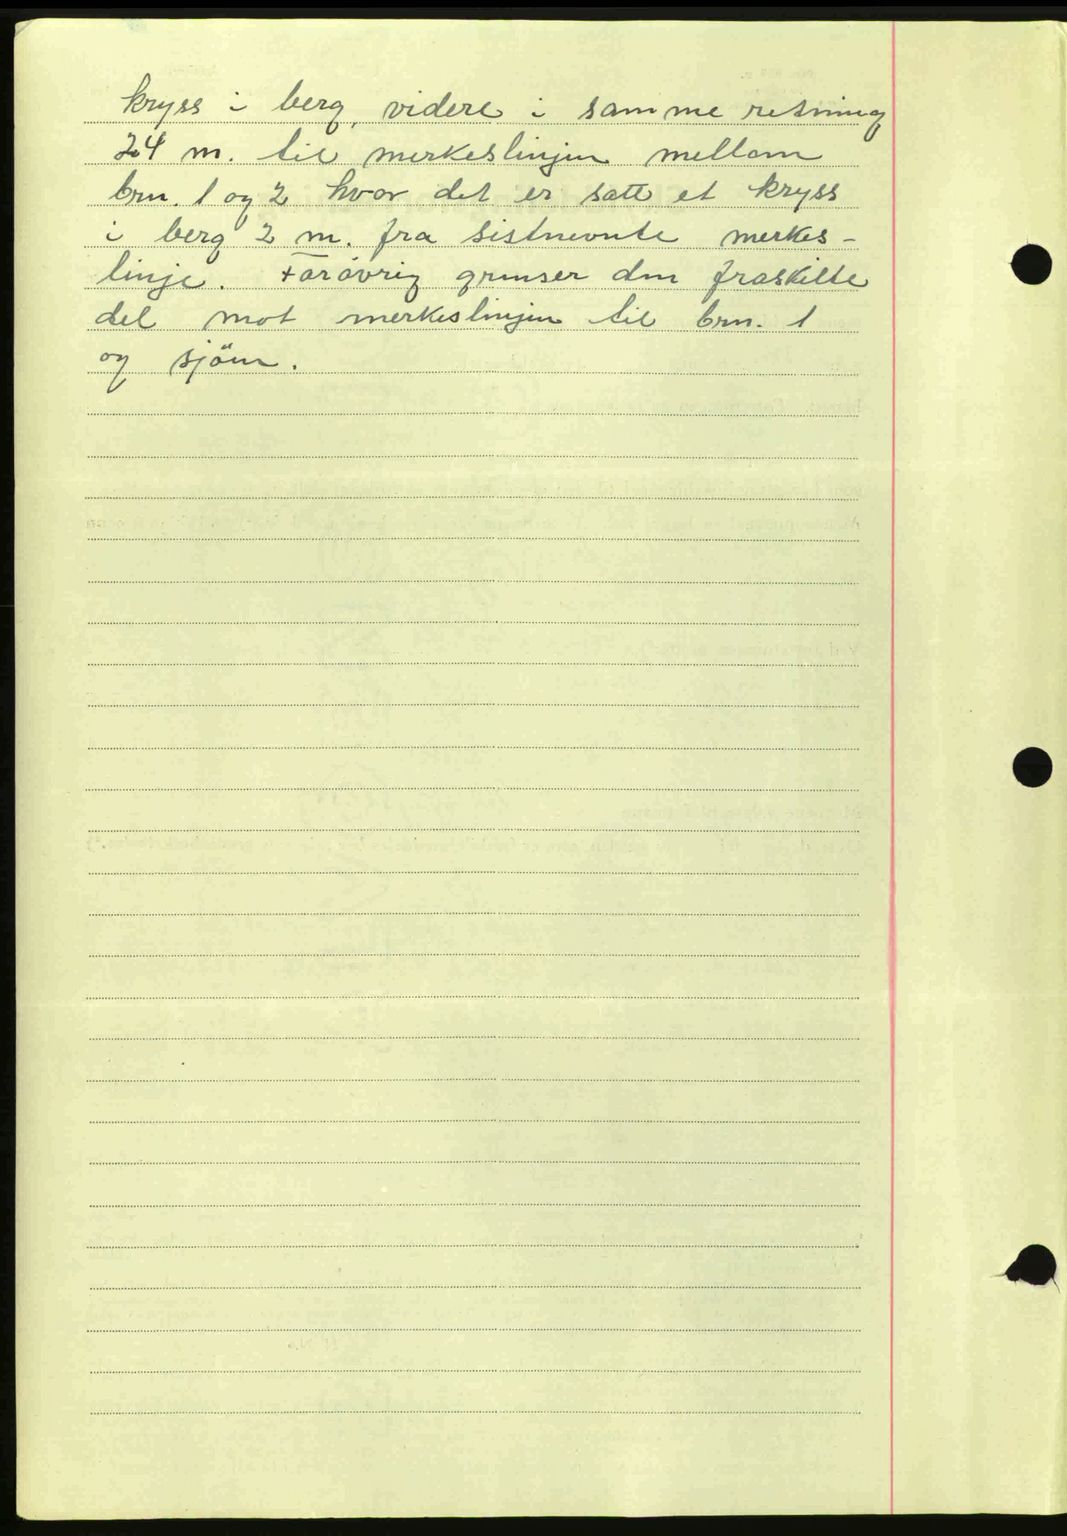 kryss i berg, videre i samme retning
24 m. til merkeslinjen mellom
brn. 1 og 2 hvor det er satt et kryss
i berg 2 m. fra sistnevnte merkes-
linje. Forøvrig grenser den fraskilte
del mot merkeslinjen til brn. 1
og sjöen.